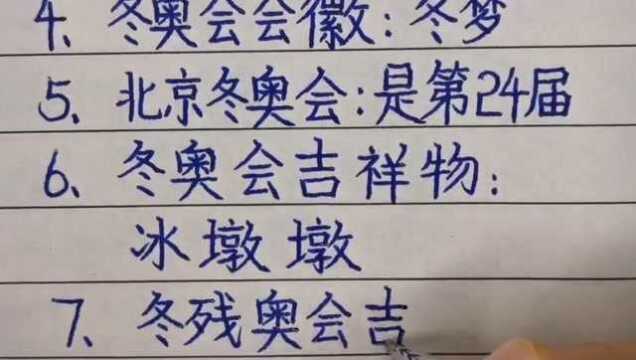 4、冬奥会会徽:冬梦
5、北京冬奥会:是第24届
6、冬奥会吉祥物:
冰墩墩
7、冬残奥会吉